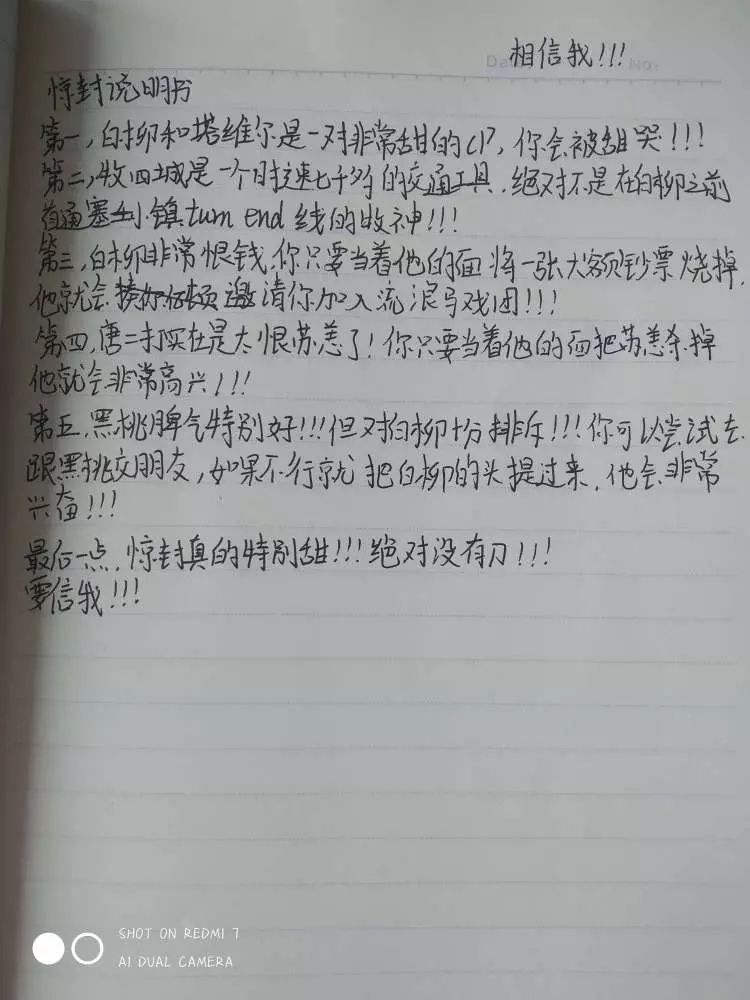 相信我!!!
Da No:
惊封说明书
第一,白柳和塔维尔是一对非常甜的CP,你会被甜哭!!!
第二,牧四城是一个时速七千多的交通工具,绝对不是在白柳之前
塞壬小镇turn end线的牧神!!!
第三,白柳非常恨钱,你只要当着他的面将一张大额钞票烧掉,
他就会邀请你加入流浪马戏团!!!
第四,唐二打实在是太恨苏恙了!你只要当着他的面把苏恙杀掉
他就会非常高兴!!!
第五,黑桃脾气特别好!!!但对白柳十分排斥!!!你可以尝试去
跟黑桃交朋友,如果不行就把白柳的头提过来,他会非常
兴奋!!!
最后一点,惊封真的特别甜!!!绝对没有刀!!!
要信我!!!
SHOT ON REDMI 7
AI DUAL CAMERA